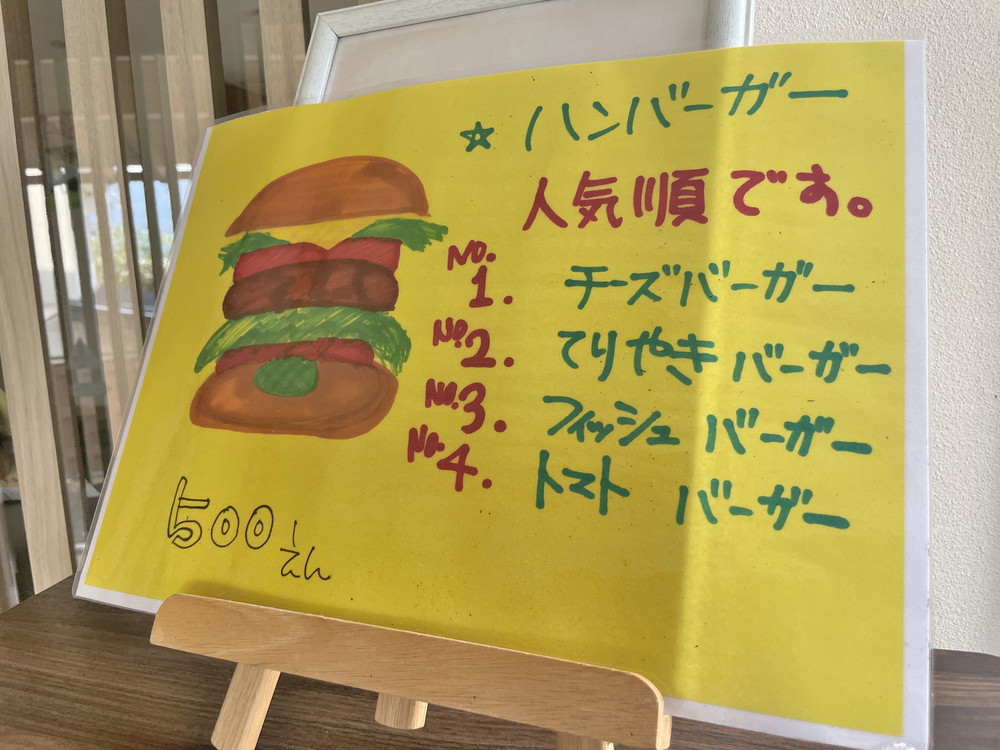 ☆ ハンバーガー
人気順です。
No.1. チーズバーガー
No.2. てりやきバーガー
No.3. フィッシュバーガー
No.4. トマトバーガー
500えん